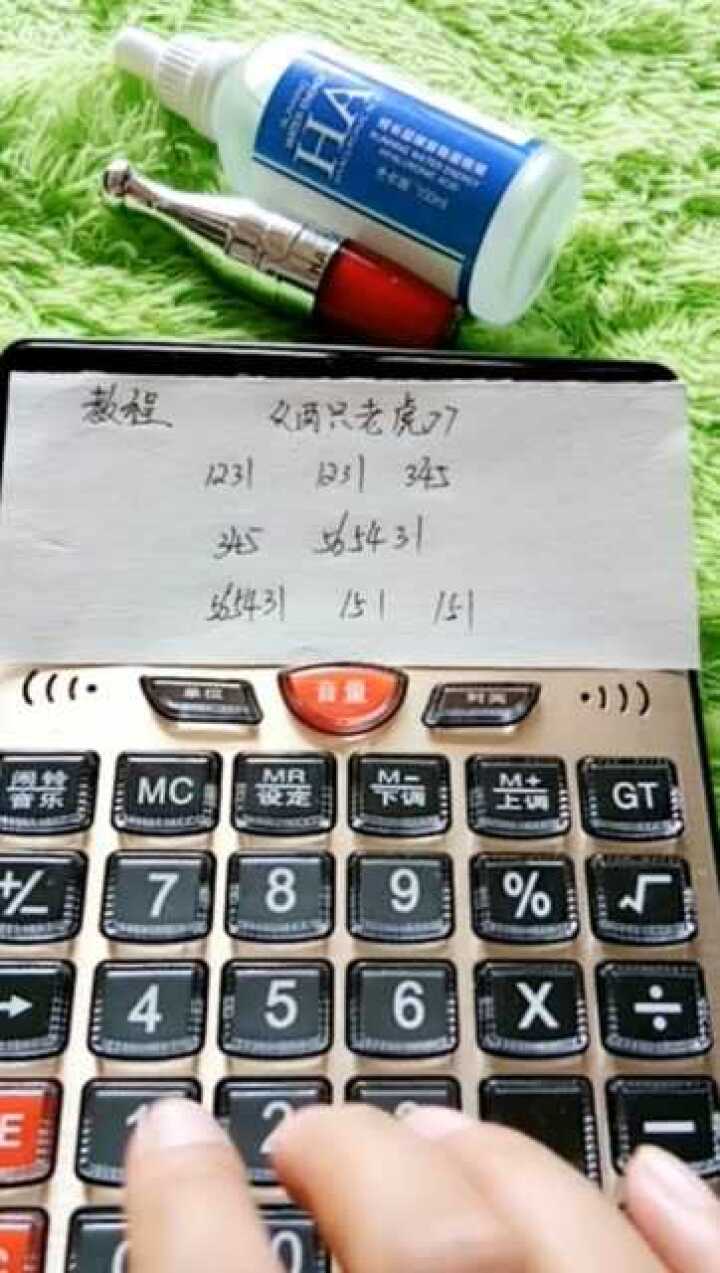 HA
教程 《两只老虎》
1231 1231 345
345 565431
565431 151 151
单位 音量 时间
闹铃 MC MR M- M+ GT
音乐 设定 下调 上调
+/- 7 8 9 % √
→ 4 5 6 X ÷
E 1 2 3 -
C 0